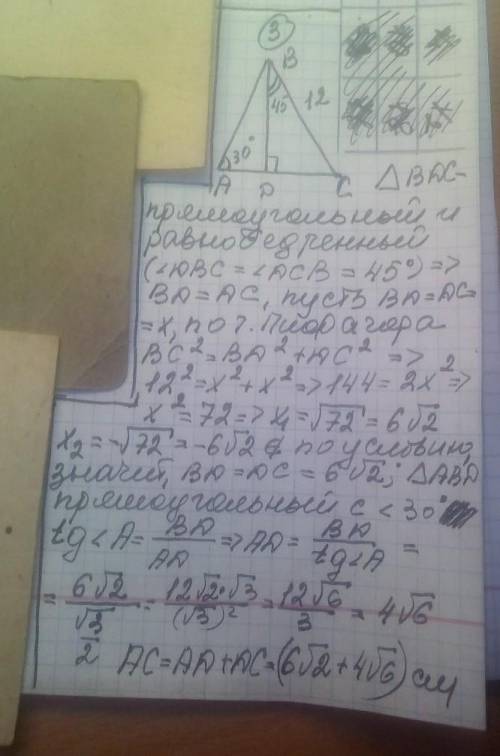 3
B
45
12
30°
A D C
△BDC-
прямоугольный и
равнобедренный
(<DBC = <ACB = 45°) =>
BD = DC, пусть BD = DC
= x, по т. Пифагора
BC² = BD² + DC² =>
12² = x² + x² => 144 = 2x² =>
x² = 72 => x₁ = √72 = 6√2
x₂ = -√72 = -6√2 ∉ по условию,
значит, BD = DC = 6√2; △ABD
прямоугольный с < 30°
tg<A = BD/AD => AD = BD/tg<A =
= 6√2/(√3/2) = 12√2·√3/(√3)² = 12√6/3 = 4√6
AC = AD + DC = (6√2 + 4√6) см